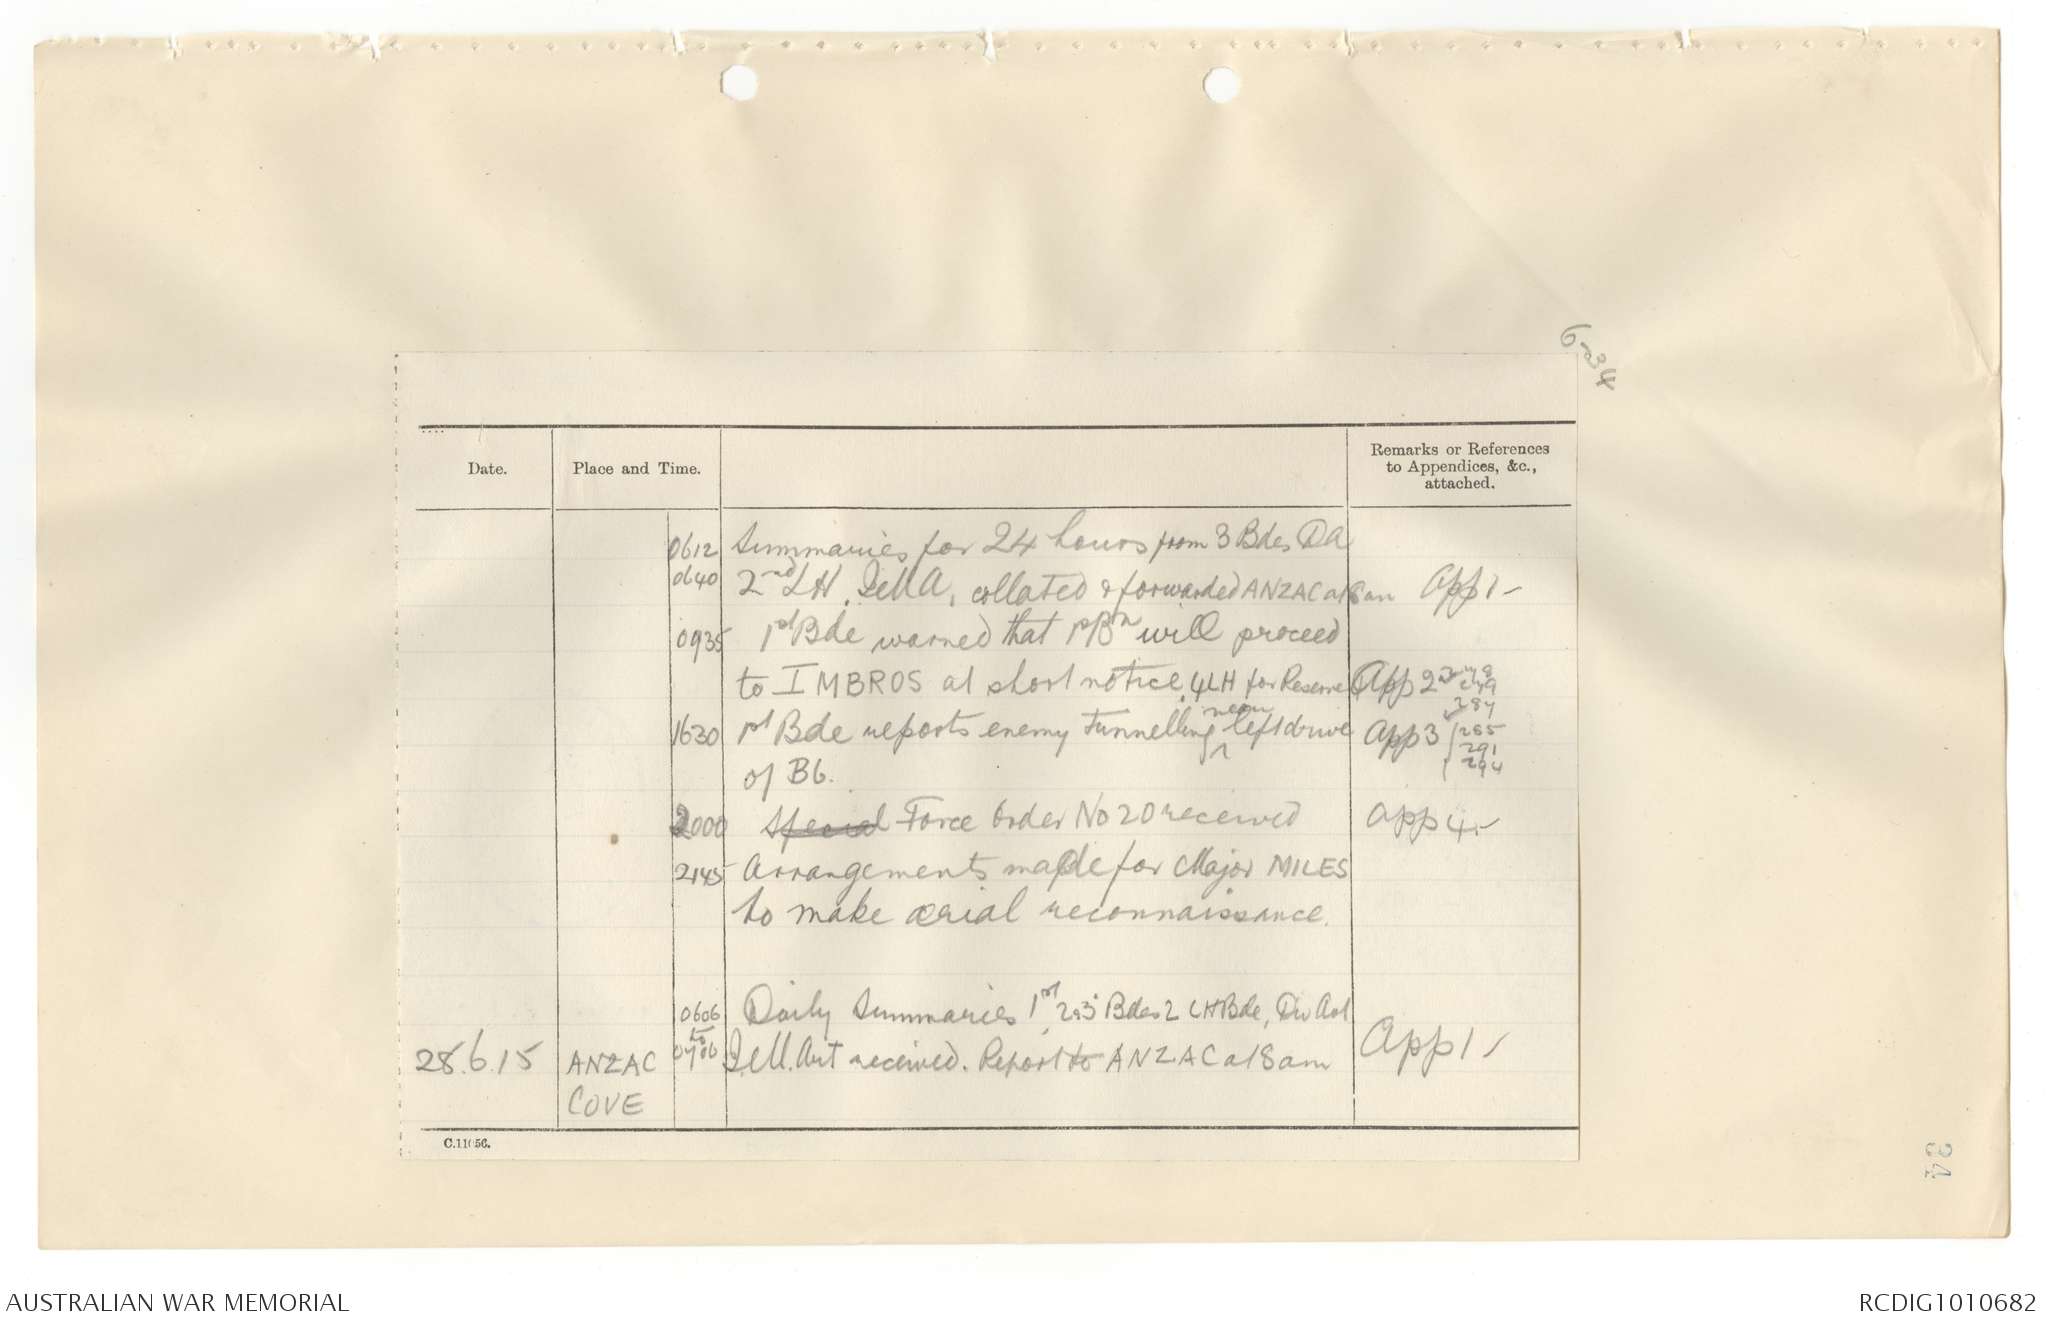 6-34
Date.
Place and Time.
Remarks or References
to Appendices, &c.,
attached.
0612 Summaries for 24 hours from 3 Bdes DA
0640 2nd LH. , collated & forwarded ANZAC at 8 am App 1
0935 1st Bde warned that 1st Bn will proceed
to IMBROS at short notice. 4 LH for Reserve App 2
284
1630 1st Bde reports enemy tunnelling near left drive App 3 285
291
294
of B6.
2000 Special Force Order No 20 received App 4
2145 Arrangements made for Major MILES
to make aerial reconnaissance.
0606 Daily Summaries 1st 2 & 3 Bdes 2 LH Bde, Div Art
to
28.6.15 ANZAC Art received. Report to ANZAC at 8 am App 1
COVE
C.11056.
34
AUSTRALIAN WAR MEMORIAL
RCDIG1010682